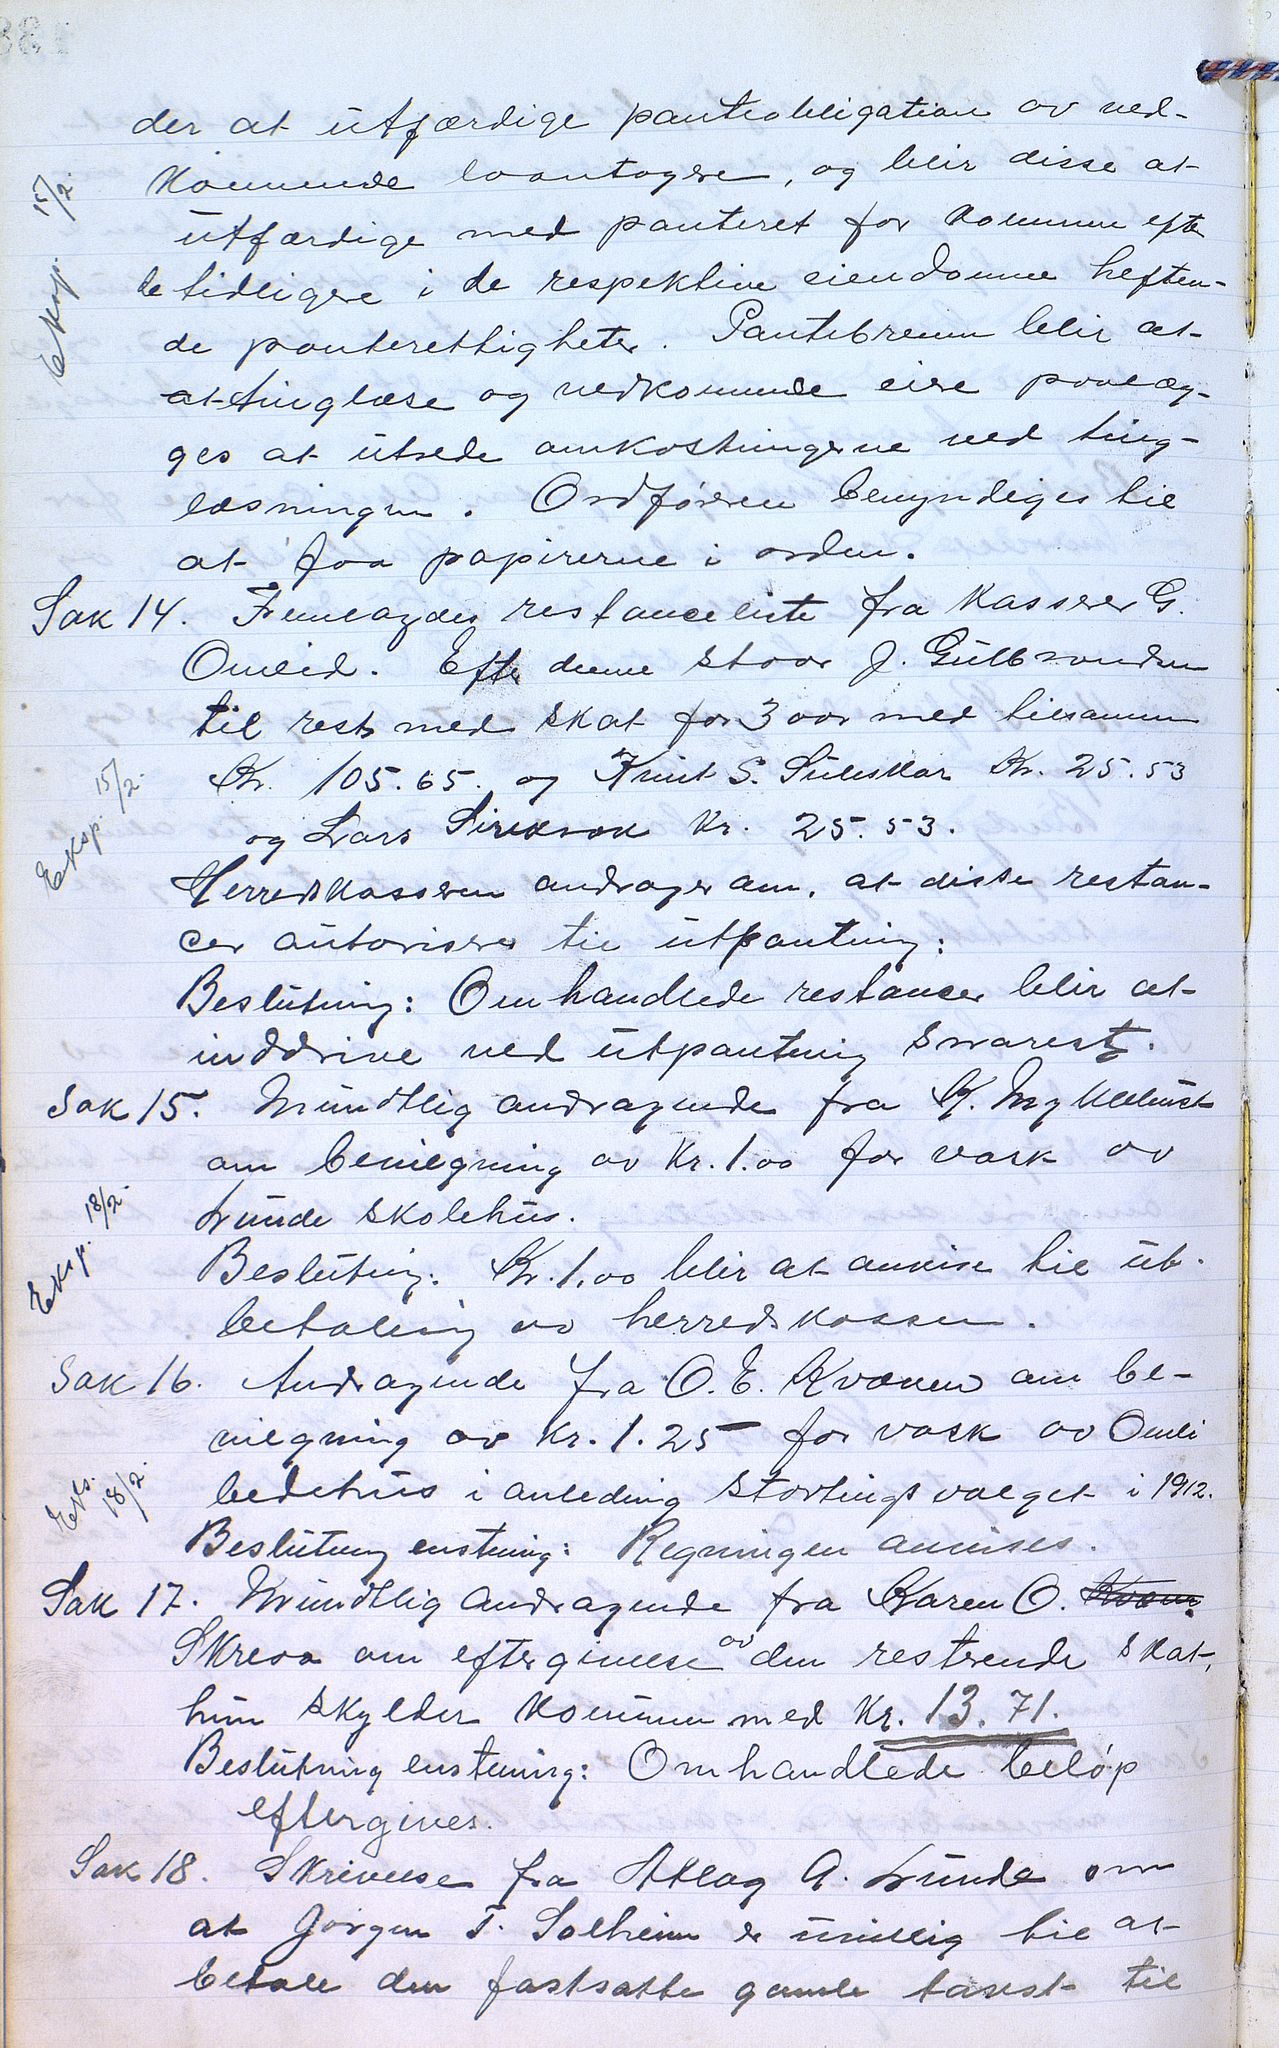 der at utfærdige panteobligation av ved-
kommende laantagere, og blir disse at
utfærdige med panteret for kommunen efter
de tidligere i de respektive eiendomme heften-
de panterettigheter. Pantebrevene blir at
at tinglæse og vedkommende eire paalæg-
ges at utrede omkostningerne ved ting-
læsningen. Ordføreren bemyndiges til
at faa papirerne i orden.
Eksp. 15/2.
Sak 14. Fremlagdes restanceliste fra kasserer G.
Omlid. Efter denne staar J. Gulbrandsen
til rest med skat for 3 aar med tilsammen
Kr. 105.65. og Knut S. Suleskar Kr. 25.53
og Lars Kr. 25.53.
Eksp. 15/2.
Herredskasseren andrager om, at disse restan-
cer autoriseres til utpantning:
Beslutning: Omhandlede restancer blir at
inddrive ved utpantning snarest.
Sak 15. Mundtlig andragende fra K. Mykelhust
om bevilgning av Kr. 1.00 for vask av
Lunde skolehus.
Eksp. 18/2.
Beslutning: Kr. 1,00 blir at anvise til ut-
betaling av herredskassen.
Sak 16. Andragende fra O. E. Kvæven om be-
vilgning av Kr. 1.25 for vask av Omli
bedehus i anledning stortingsvalget i 1912.
Eks. 18/2.
Beslutning enstemig: Regningen anvises.
Sak 17. Mundtlig andragende fra Karen O. Kvæv.
Skreaa om eftergivelse av den resterende skat,
hun skylder kommunen med Kr. 13.71.
Beslutning enstemig: Omhandlede beløp
eftergives.
Sak 18. Skrivelse fra Atlag A. Lunde om
at Jørgen T. Solheim er uvillig til at
betale den fastsatte gamle takst til